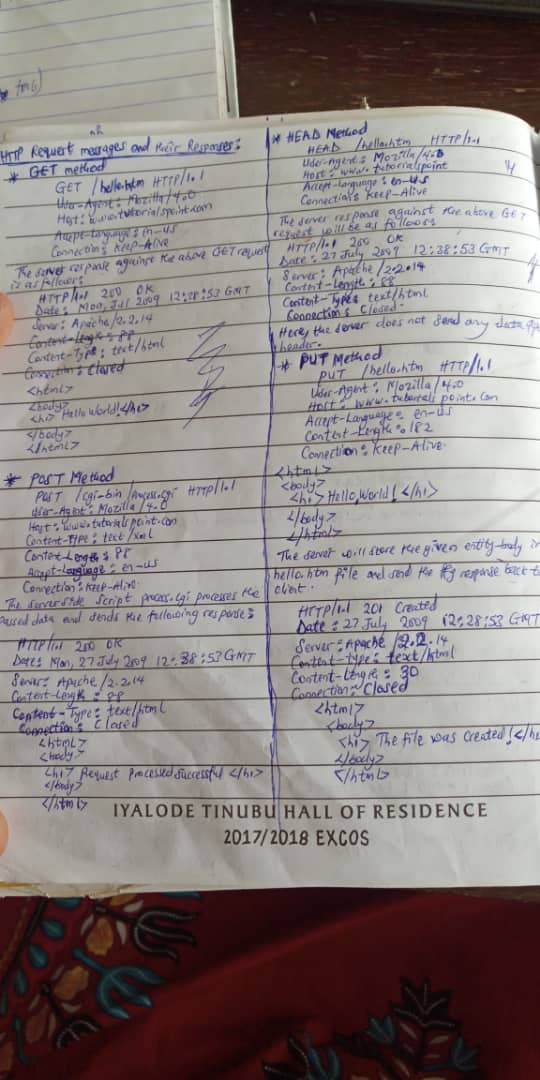 HTTP Request messages and their Responses:
* GET method
GET /hello.htm HTTP/1.1
User-Agent: Mozilla/4.0
Host: www.tutorialspoint.com
Accept-language: en-us
Connection: Keep-Alive
The server response against the above GET request
is as follows:
HTTP/1.1 200 OK
Date: Mon, Jul 2009 12:28:53 GMT
Server: Apache/2.2.14
Content-Length: 88
Content-Type: text/html
Connection: Closed
<html>
<body>
<h1> Hello World! </h1>
</body>
</html>
* POST Method
POST /cgi-bin /process.cgi HTTP/1.1
User-Agent: Mozilla/4.0
Host: www.tutorialspoint.com
Content-Type: text/xml
Content-Length: 88
Accept-Language: en-us
Connection: Keep-Alive.
The serverside script process.cgi processes the
passed data and sends the following response:
HTTP/1.1 200 OK
Date: Mon, 27 July 2009 12:28:53 GMT
Server: Apache/2.2.14
Content-Length: 88
Content-Type: text/html
Connection: Closed
<html>
<body>
<h1> Request Processed Successful </h1>
</body>
</html>
* HEAD Method
HEAD /hello.htm HTTP/1.1
User-Agent: Mozilla/4.0
Host: www.tutorialspoint
Accept-Language: en-us
Connection: Keep-Alive
The server response against the above GET
request will be as follows
HTTP/1.1 200 OK
Date: 27 July 2009 12:28:53 GMT
Server: Apache/2.2.14
Content-Length: 88
Content-Type: text/html
Connection: Closed.
Here, the server does not send any data
header.
* PUT Method
PUT /hello.htm HTTP/1.1
User-Agent: Mozilla/4.0
Host: www.tutorialspoint.com
Accept-Language: en-us
Content-Length: 182
Connection: Keep-Alive.
<html>
<body>
<h1> Hello, World! </h1>
</body>
</html>
The server will store the given entity-body in
hello.htm file and send the response back to
client.
HTTP/1.1 201 Created
Date: 27 July 2009 12:28:53 GMT
Server: Apache /2.2.14
Content-type: text/html
Content-Length: 30
Connection: Closed
<html>
<body>
<h1> The file was Created! </h
</body>
</html>
IYALODE TINUBU HALL OF RESIDENCE
2017/2018 EXCOS